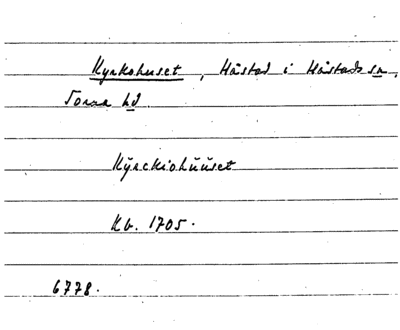 Kyrkohuset, Håstad i Håstads sn,
Torna hd.
Kÿrckiohüüset
Kb. 1705.
6778.